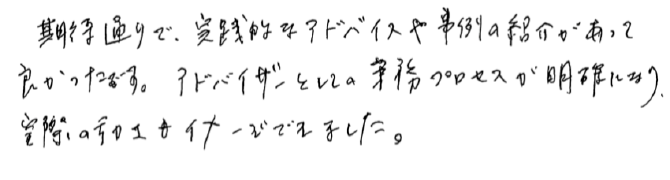 期待通りで、実践的なアドバイスや事例の紹介があって
良かったです。アドバイザーとしての業務プロセスが明確になり、
実際の動きもイメージできました。